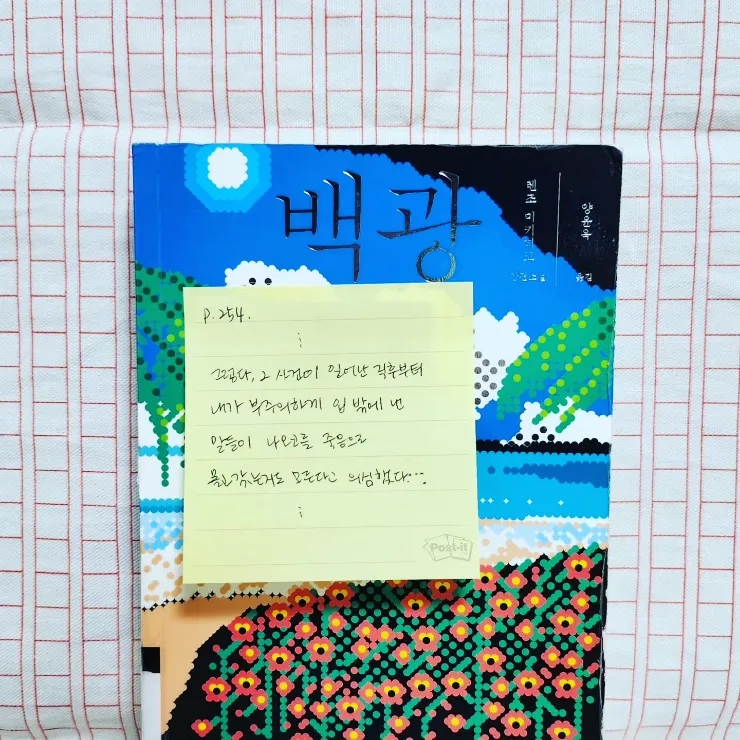 백광
렌조 미키히코
장편소설
양윤옥
옮김
P. 254.
⋮
그렇다, 그 사건이 일어난 직후부터
내가 부주의하게 입 밖에 낸
말들이 나오코를 죽음으로
몰고갔는지도 모른다고 의심했다….
⋮
Post-it